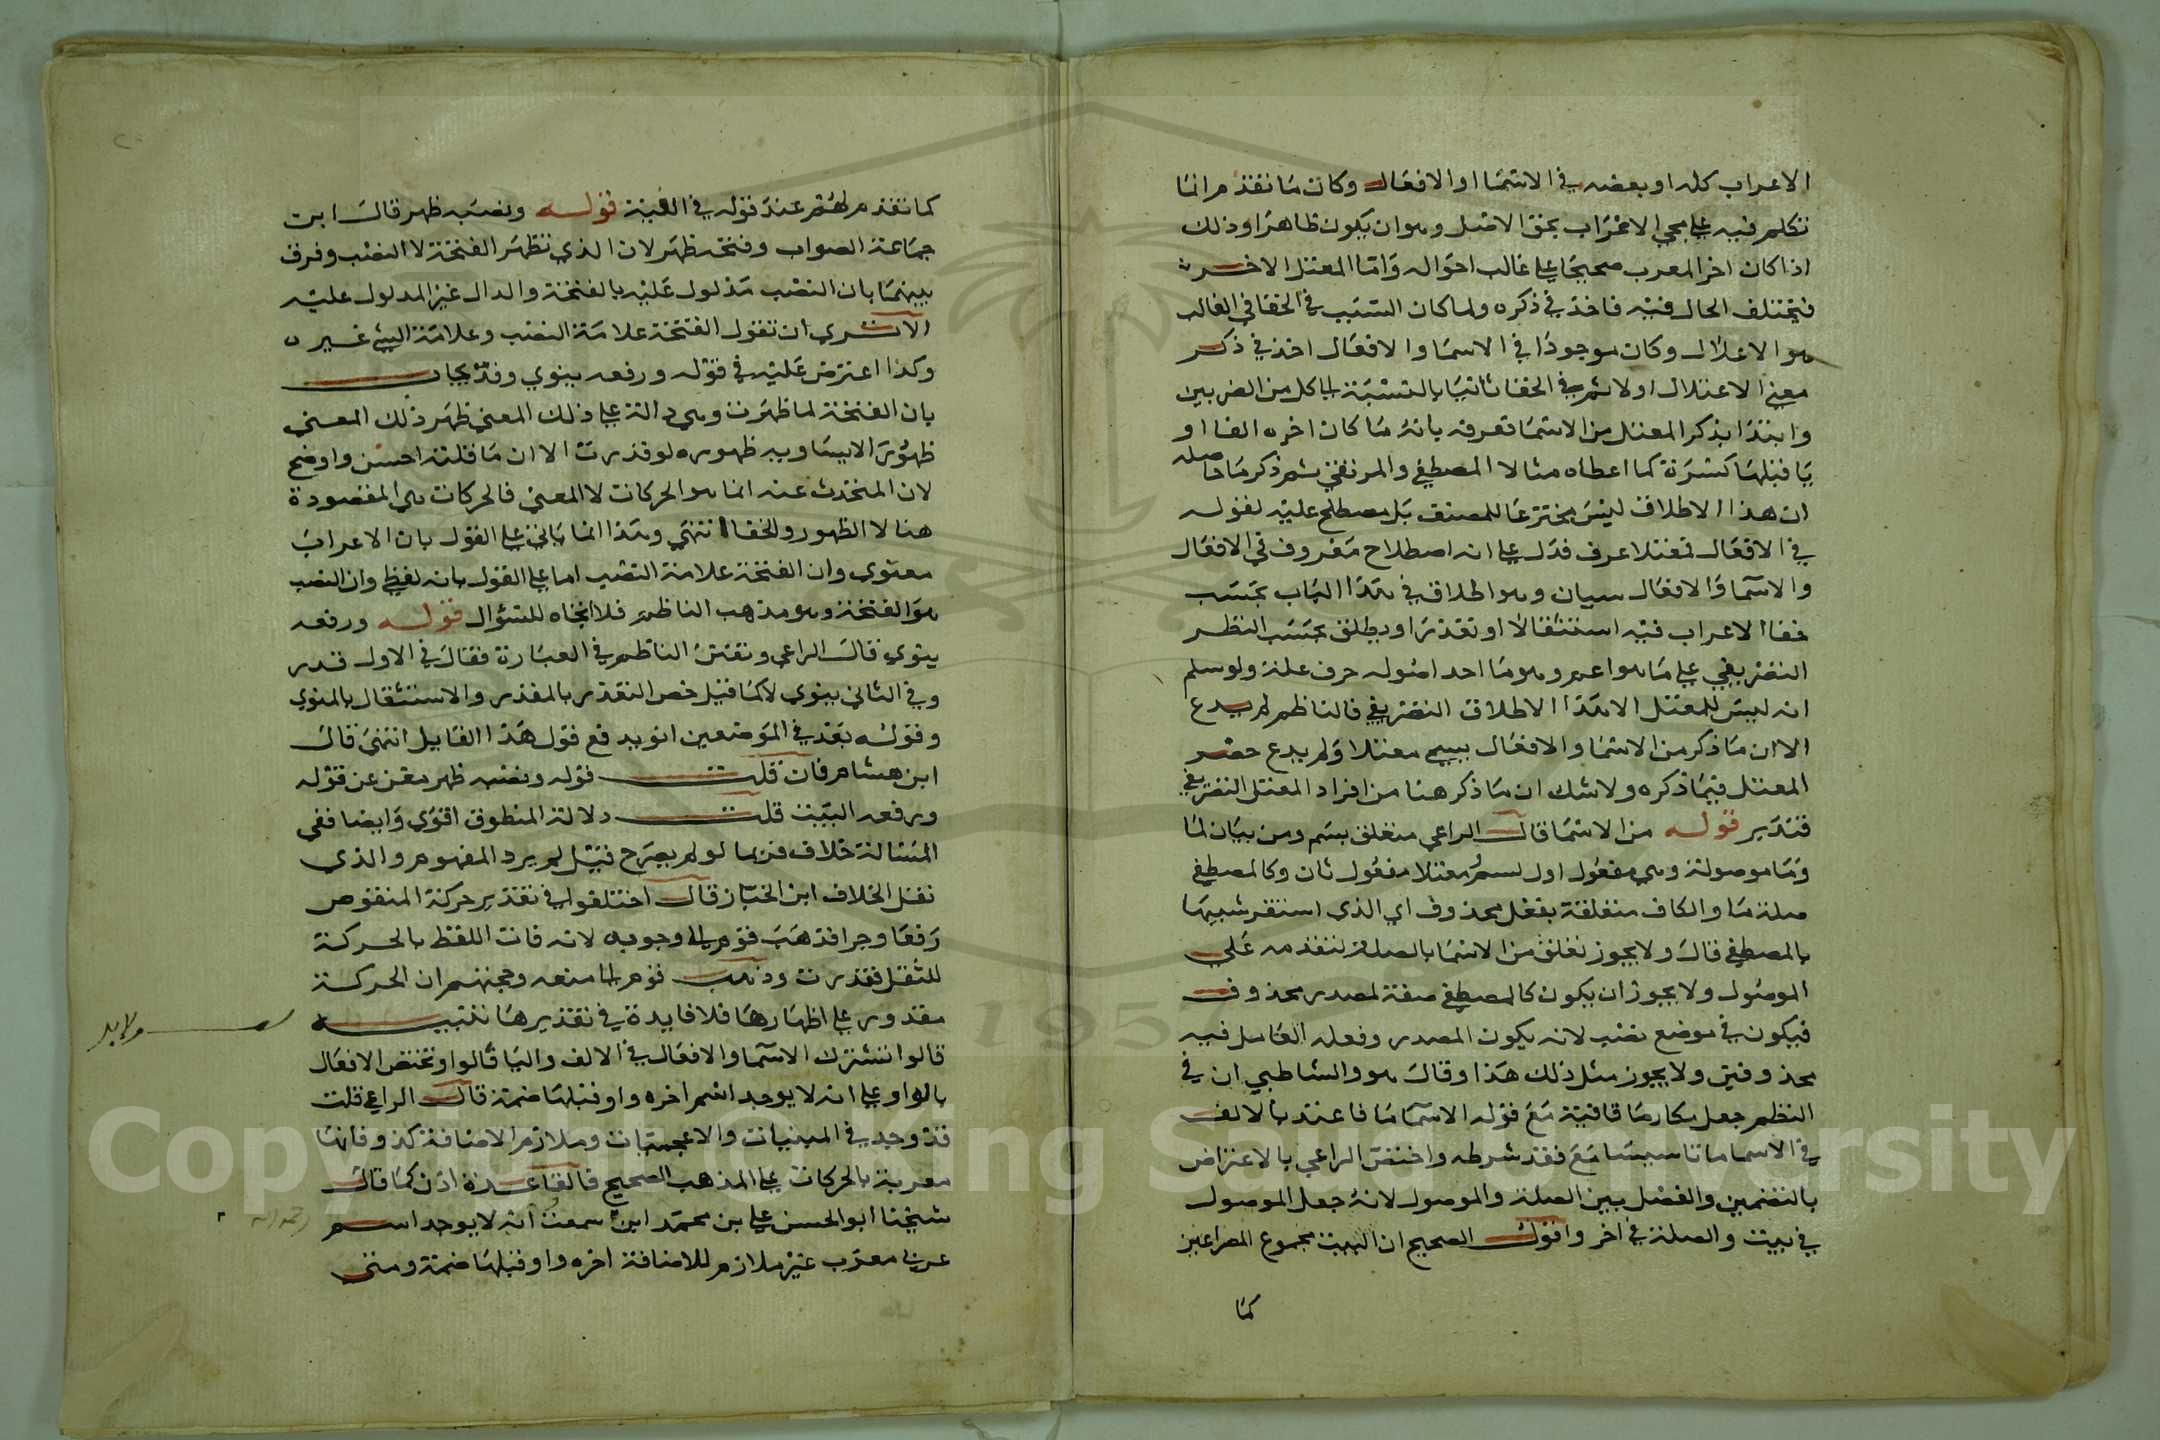 الاعراب كله او بعضه في الاسما او الافعال وكان ما تقدم انما
تكلم فيه على مجي الاعراب بحق الاصل وهو ان يكون ظاهرا وذلك
اذا كان اخر المعرب صحيحا على غالب احواله واما المعتل الاخر
فيختلف الحال فيه فاخذ في ذكره ولما كان السبب في الخفا في الغالب
هو الاعلال وكان موجودا في الاسما والافعال اخذ في ذكر
معني الاعتلال اولا ثم في الخفا ثانيا بالنسبة الى كل من الضربين
وابتدا بذكر المعتل من الاسما فعرفه بانه ما كان اخره الفا او
يا قبلها كسرة كما اعطاه مثالا المصطفي والمرتقي ثم ذكر ما حاصله
ان هذا الاطلاق ليس مخترعا للمصنف بل مصطلح عليه لقوله
في الافعال فمعتلا عرف فدل على انه اصطلاح معروف في الافعال
والاسما والافعال سيان وهو اطلاق في هذا الباب بحسب
خفا الاعراب فيه استثقالا او تقذرا ويطلق بحسب النظر
التصريفي على ما هو اعم وهو ما احد اصوله حرف علة ولو سلم
انه ليس للمعتل الا هذا الاطلاق التصريفي فالناظم لم يدع
الا ان ما ذكر من الاسما والافعال يسمي معتلا ولم يدع حصر
المعتل فيما ذكره ولا شك ان ما ذكر هنا من افراد المعتل التصريفي
فتدبر قوله من الاسما قال الراعي متعلق بسم ومن بيان لما
وما موصولة وهي مفعول اول لسم ومعتلا مفعول ثان وكالمصطفي
صلة ما والكاف متعلقة بفعل محذوف اي الذي استقر شبيها
بالمصطفي قال ولا يجوز تعلق من الاسما بالصلة لتقدمه على
الموصول ولا يجوز ان يكون كالمصطفي صفة لمصدر محذوف
فيكون في موضع نصب لانه يكون المصدر وفعله العامل فيه
محذوفين ولا يجوز مثل ذلك هذا وقال هو والشاطبي ان في
النظم جعل مكارما قافية مع قوله الاسما ما فاعتد بالالف
في الاسما ما تاسيسا مع فقد شرطه واختص الراعي بالاعتراض
بالتضمين والفصل بين الصلة والموصول لانه جعل الموصول
في بيت والصلة في اخر واقول الصحيح ان البيت مجموع المصراعين
كما
كما تقدم لهم عند قوله في الفية قوله ونصبه ظهر قال ابن
جماعة الصواب وفتحه ظهر لان الذي تظهر الفتحة لا النصب وفرق
بينهما بان النصب مدلول عليه بالفتحة والدال غير المدلول عليه
الا تري ان تقول الفتحة علامة النصب وعلامة الشي غيره
وكذا اعترض عليه في قوله ورفعه ينوي وقد يجاب
بان الفتحة لما ظهرت وهي دالة على ذلك المعني ظهر ذلك المعني
ظهور الاسما وبه ظهوره لو قدرت الا ان ما قلته احسن واوضح
لان المتحدث عنه انما هو الحركات لا المعني فالحركات هي المقصودة
هنا لا الظهور والخفا انتهي وهذا انما ياتي على القول بان الاعراب
معنوي وان الفتحة علامة النصب اما على القول بانه لفظي وان النصب
هو الفتحة وهو مذهب الناظم فلا اتجاه للسؤال قوله ورفعه
ينوي قال الراعي وتفنن الناظم في العبارة فقال في الاول قدر
وفي الثاني ينوي لا كما قيل خص التقدير بالمقدر والاستثقال بالمنوي
وقوله بعد في الموضعين انو يدفع قول هذا القايل انتهي قال
ابن هشام فان قلت قوله ونصبه ظهر مغن عن قوله
ورفعه البتة قلت دلالة المنطوق اقوي وايضا ففي
المسالة خلاف فربما لو لم يصرح قيل لم يرد المفهوم والذي
نقل الخلاف ابن الخباز قال اختلفوا في تقدير حركة المنقوص
رفعا وجرا فذهب قوم الى وجوبه لانه فات اللفظ بالحركة
للثقل فقدرت وذهب قوم الى منعه وحجتهم ان الحركة
مقدور على اظهارها فلا فايدة في تقديرها تنبيه
قالوا تشترك الاسما والافعال في الالف واليا قالوا وتختص الافعال
بالواو على انه لا يوجد اسم اخره واو قبلها ضمة قال الراعي قلت
قد وجد في المبنيات والاعجميات وملازم الاضافة كذو فانها
معربة بالحركات على المذهب الصحيح فالقاعدة اذن كما قال
شيخنا ابو الحسن علي بن محمد ابن سمعت انه لا يوجد اسم
رحمه الله
عربي معرب غير ملازم للاضافة اخره واو قبلها ضمة ومتي